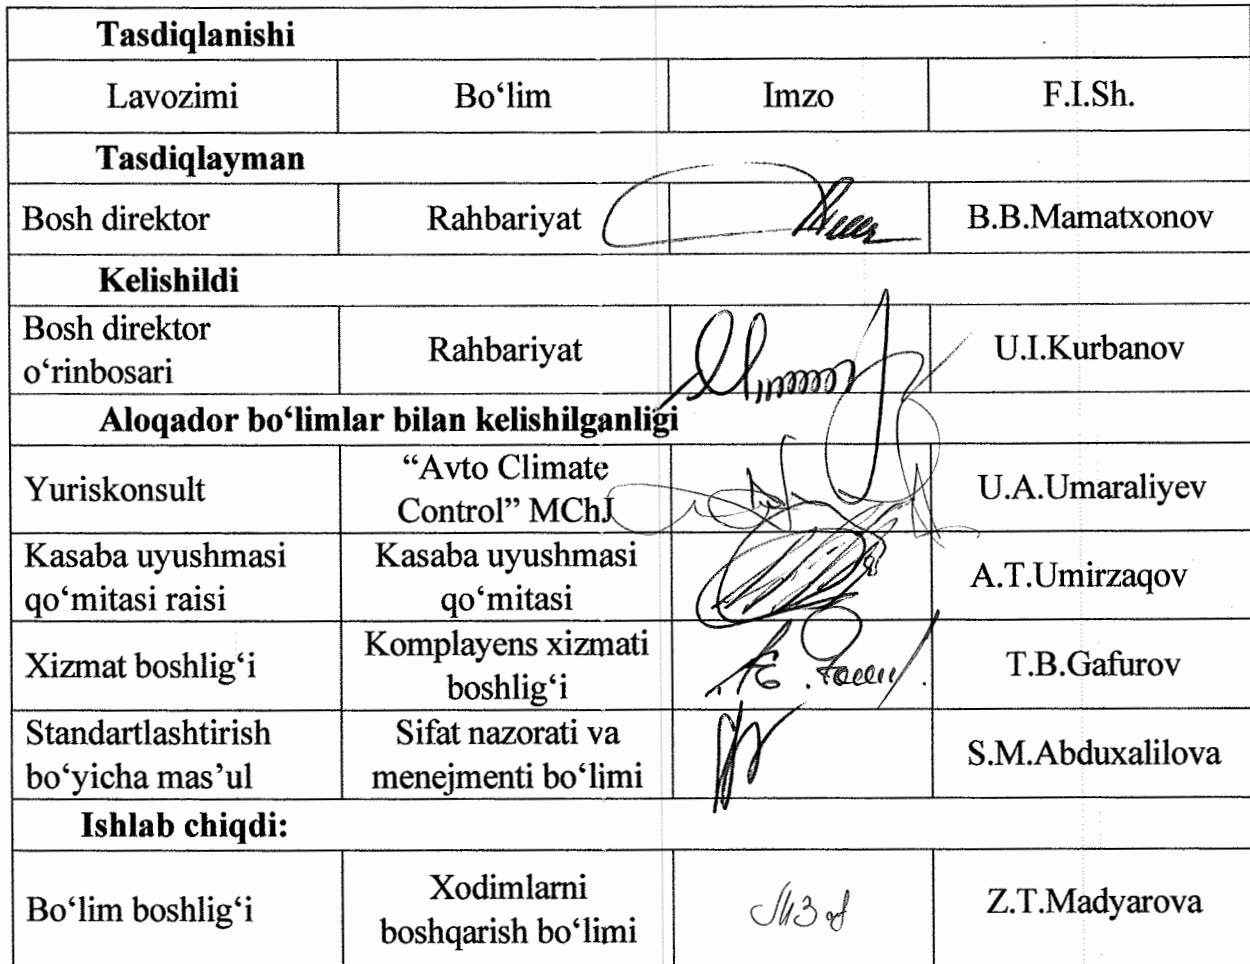 Tasdiqlanishi
Lavozimi Bo‘lim Imzo F.I.Sh.
Tasdiqlayman
Bosh direktor Rahbariyat B.B.Mamatxonov
Kelishildi
Bosh direktor
o‘rinbosari
Rahbariyat
U.I.Kurbanov
Aloqador bo‘limlar bilan kelishilganligi
Yuriskonsult
“Avto Climate
Control” MChJ
U.A.Umaraliyev
Kasaba uyushmasi
qo‘mitasi raisi
Kasaba uyushmasi
qo‘mitasi
A.T.Umirzaqov
Xizmat boshlig‘i
Komplayens xizmati
boshlig‘i
T.B.Gafurov
Standartlashtirish
bo‘yicha mas’ul
Sifat nazorati va
menejmenti bo‘limi
S.M.Abduxalilova
Ishlab chiqdi:
Bo‘lim boshlig‘i
Xodimlarni
boshqarish bo‘limi
Z.T.Madyarova